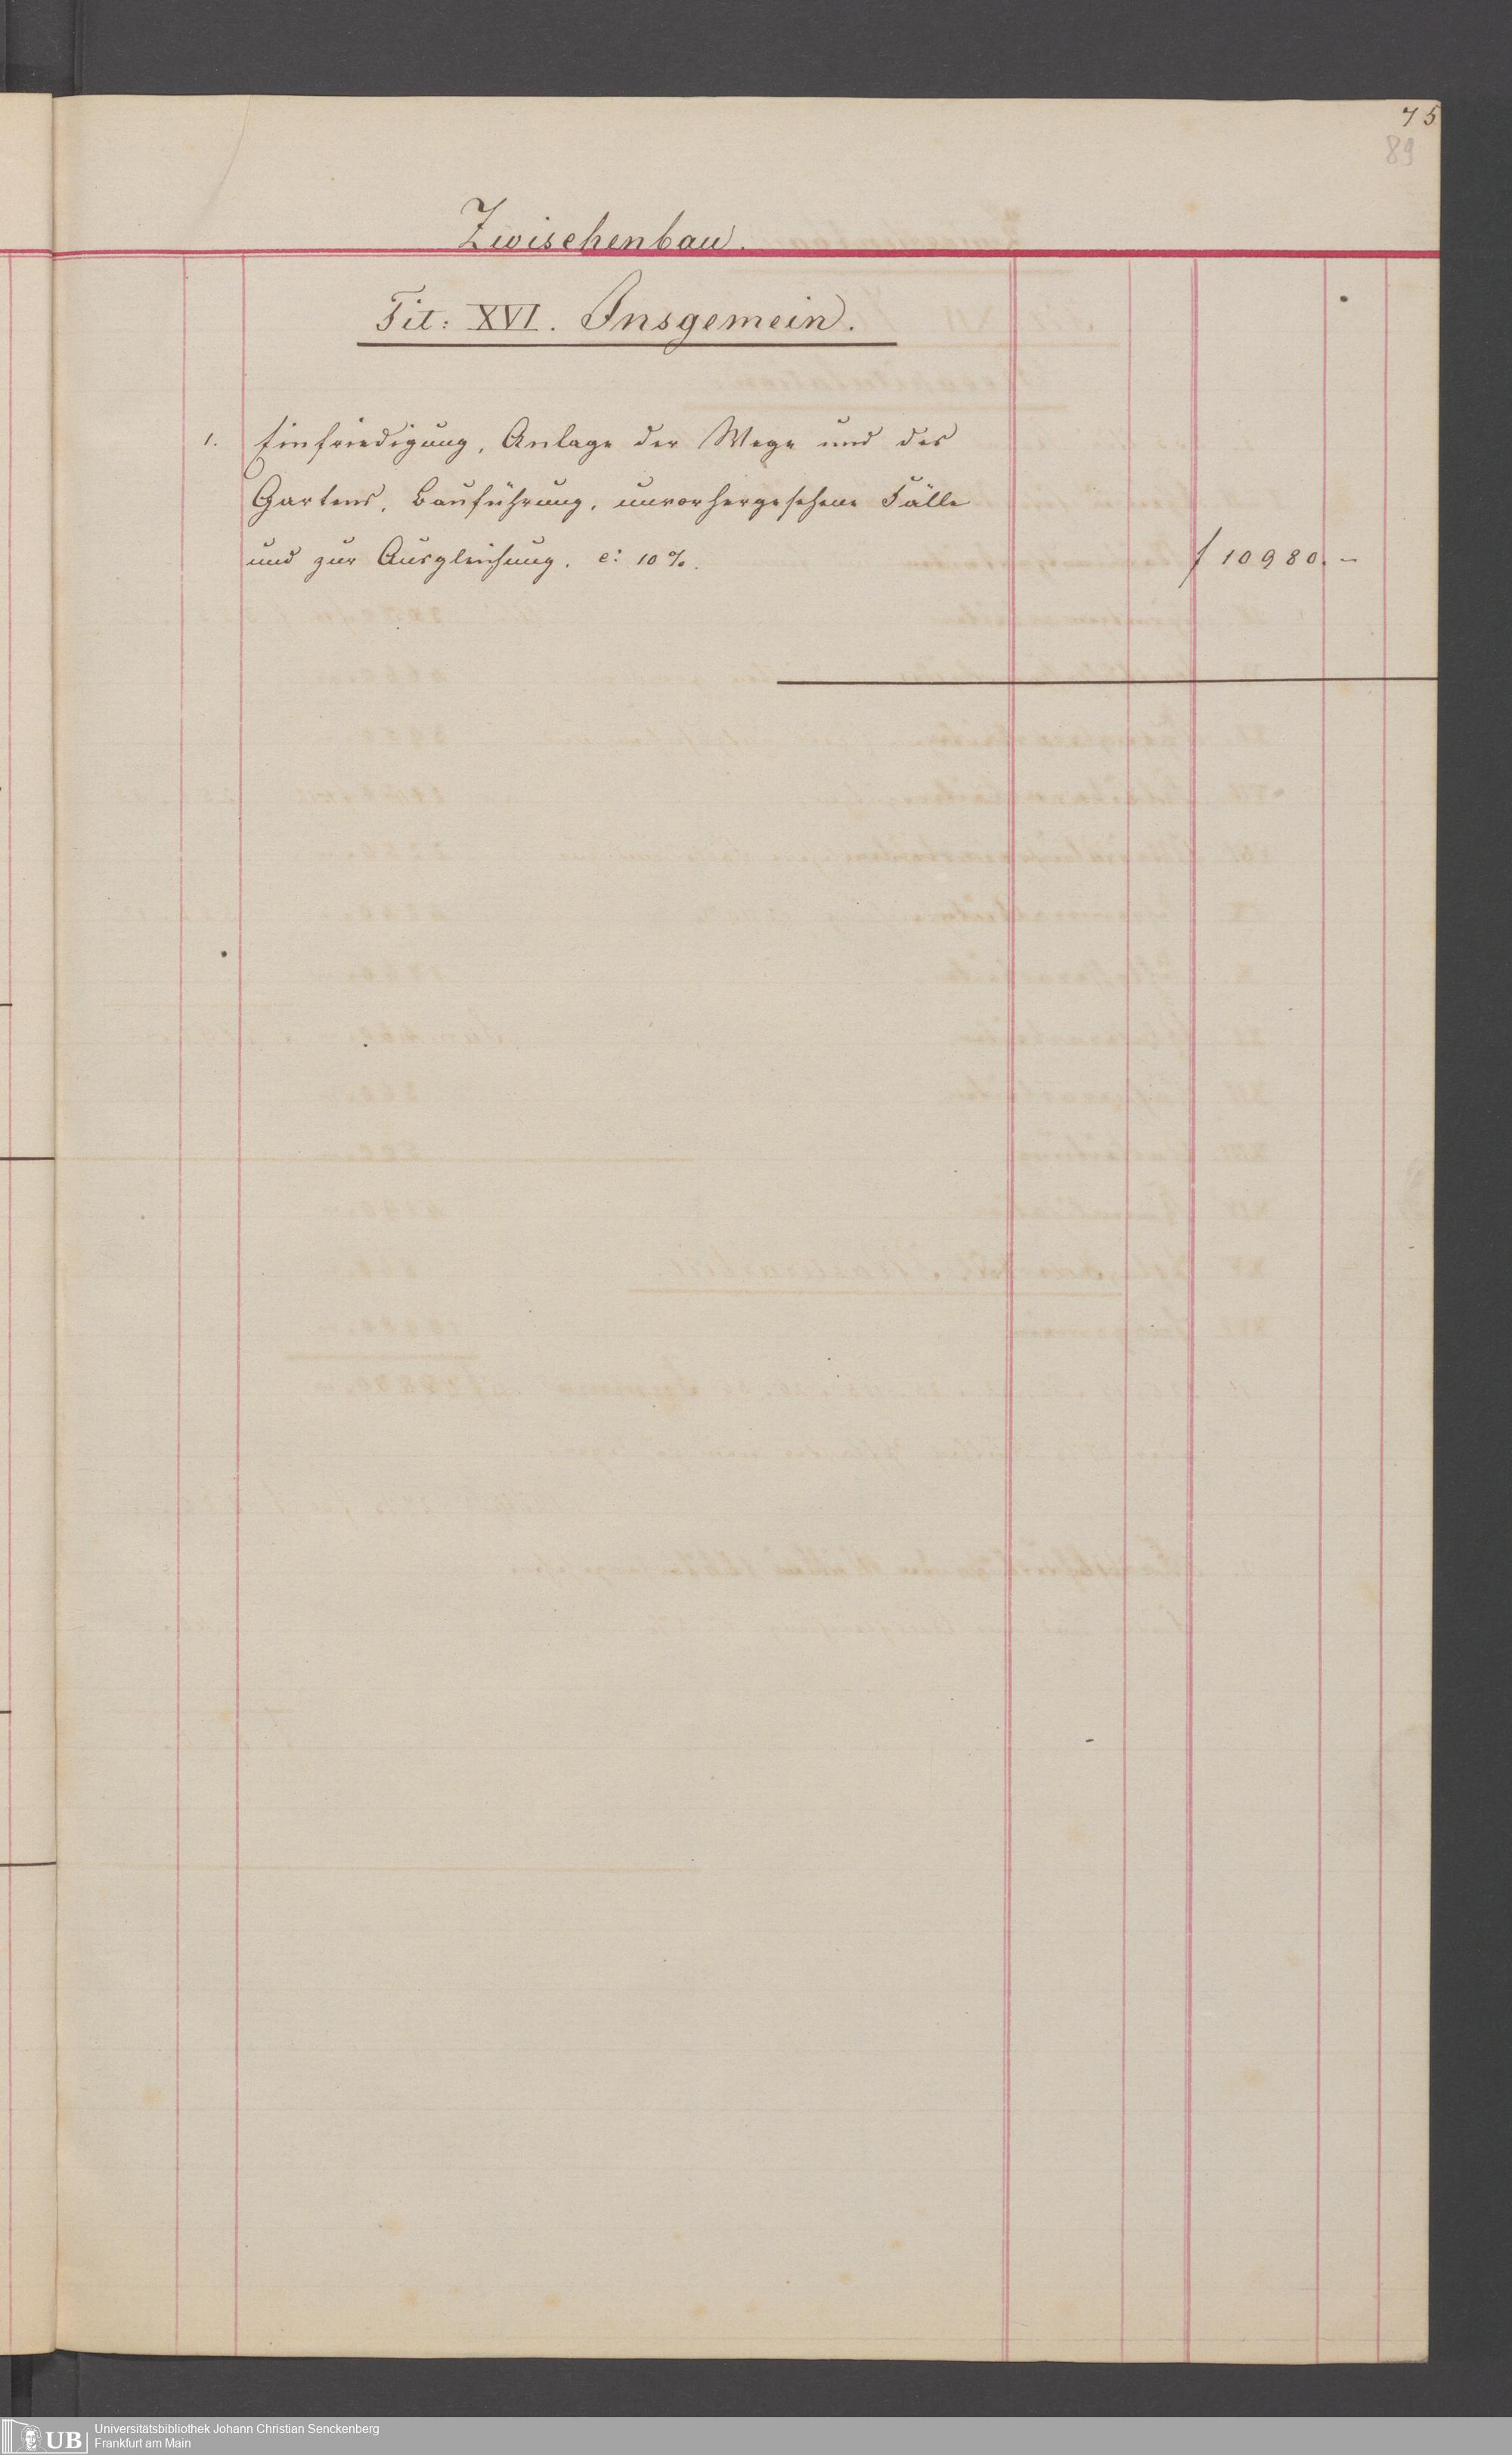 75
89
Zwischenbau.
Tit: XVI. Insgemein.
1. Einfriedigung, Anlage der Wege und des
Gartens, Bauführung, unvorhergesehene Fälle
und zur Ausgleichung. c: 10%. f 10980.-
UB Universitätsbibliothek Johann Christian Senckenberg
Frankfurt am Main